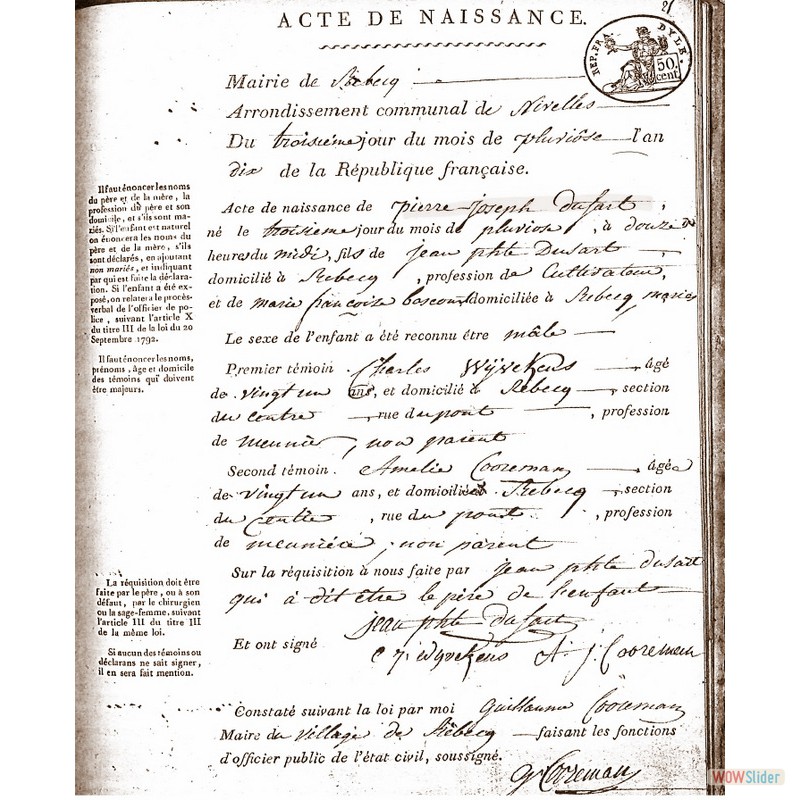 21
ACTE DE NAISSANCE.
REP. FRA. DYLE.
50. cent.
Mairie de Rebecq
Arrondissement communal de Nivelles
Du troisieme jour du mois de pluviôse l'an
dix de la République française.
Acte de naissance de pierre joseph dusart,
né le troisieme jour du mois de pluviose, à douze
heure du midi, fils de jean phte Dusart,
domicilié à Rebecq, profession de Cultivateur,
et de marie francoise domiciliée à Rebecq mariés
Le sexe de l'enfant a été reconnu être mâle
Premier témoin. Charles Wÿvekens, âgé
de vingt un ans, et domicilié à Rebecq, section
du centre, rue du pont, profession
de meunier, non parent
Second témoin. Amelie Cooreman, âgée
de vingt un ans, et domicilié à Rebecq, section
du Centre, rue du pont, profession
de meuniere, non parent
Sur la réquisition à nous faite par jean phte dusart
qui à dit être le père de l'enfant
jean phte dusart
Et ont signé
C J. Wÿvekens A J. Cooreman
Constaté suivant la loi par moi Guillaume Cooreman
Maire du village de Rebecq faisant les fonctions
d'officier public de l'état civil, soussigné.
G Cooreman
Il faut énoncer les noms
du père et de la mère, la
profession du père et son
domicile, et s'ils sont ma-
riés. Si l'enfant est naturel
on énoncera les noms du
père et de la mère, s'ils
sont déclarés, en ajoutant
non mariés, et indiquant
par qui est faite la déclara-
tion. Si l'enfant a été ex-
posé, on relatera le procès-
verbal de l'officier de po-
lice, suivant l'article X
du titre III de la loi du 20
Septembre 1792.
Il faut énoncer les noms,
prénoms, âge et domicile
des témoins qui doivent
être majeurs.
La réquisition doit être
faite par le père, ou à son
défaut, par le chirurgien
ou la sage-femme, suivant
l'article III du titre III
de la même loi.
Si aucun des témoins ou
déclarans ne sait signer,
il en sera fait mention.
WOWSlider